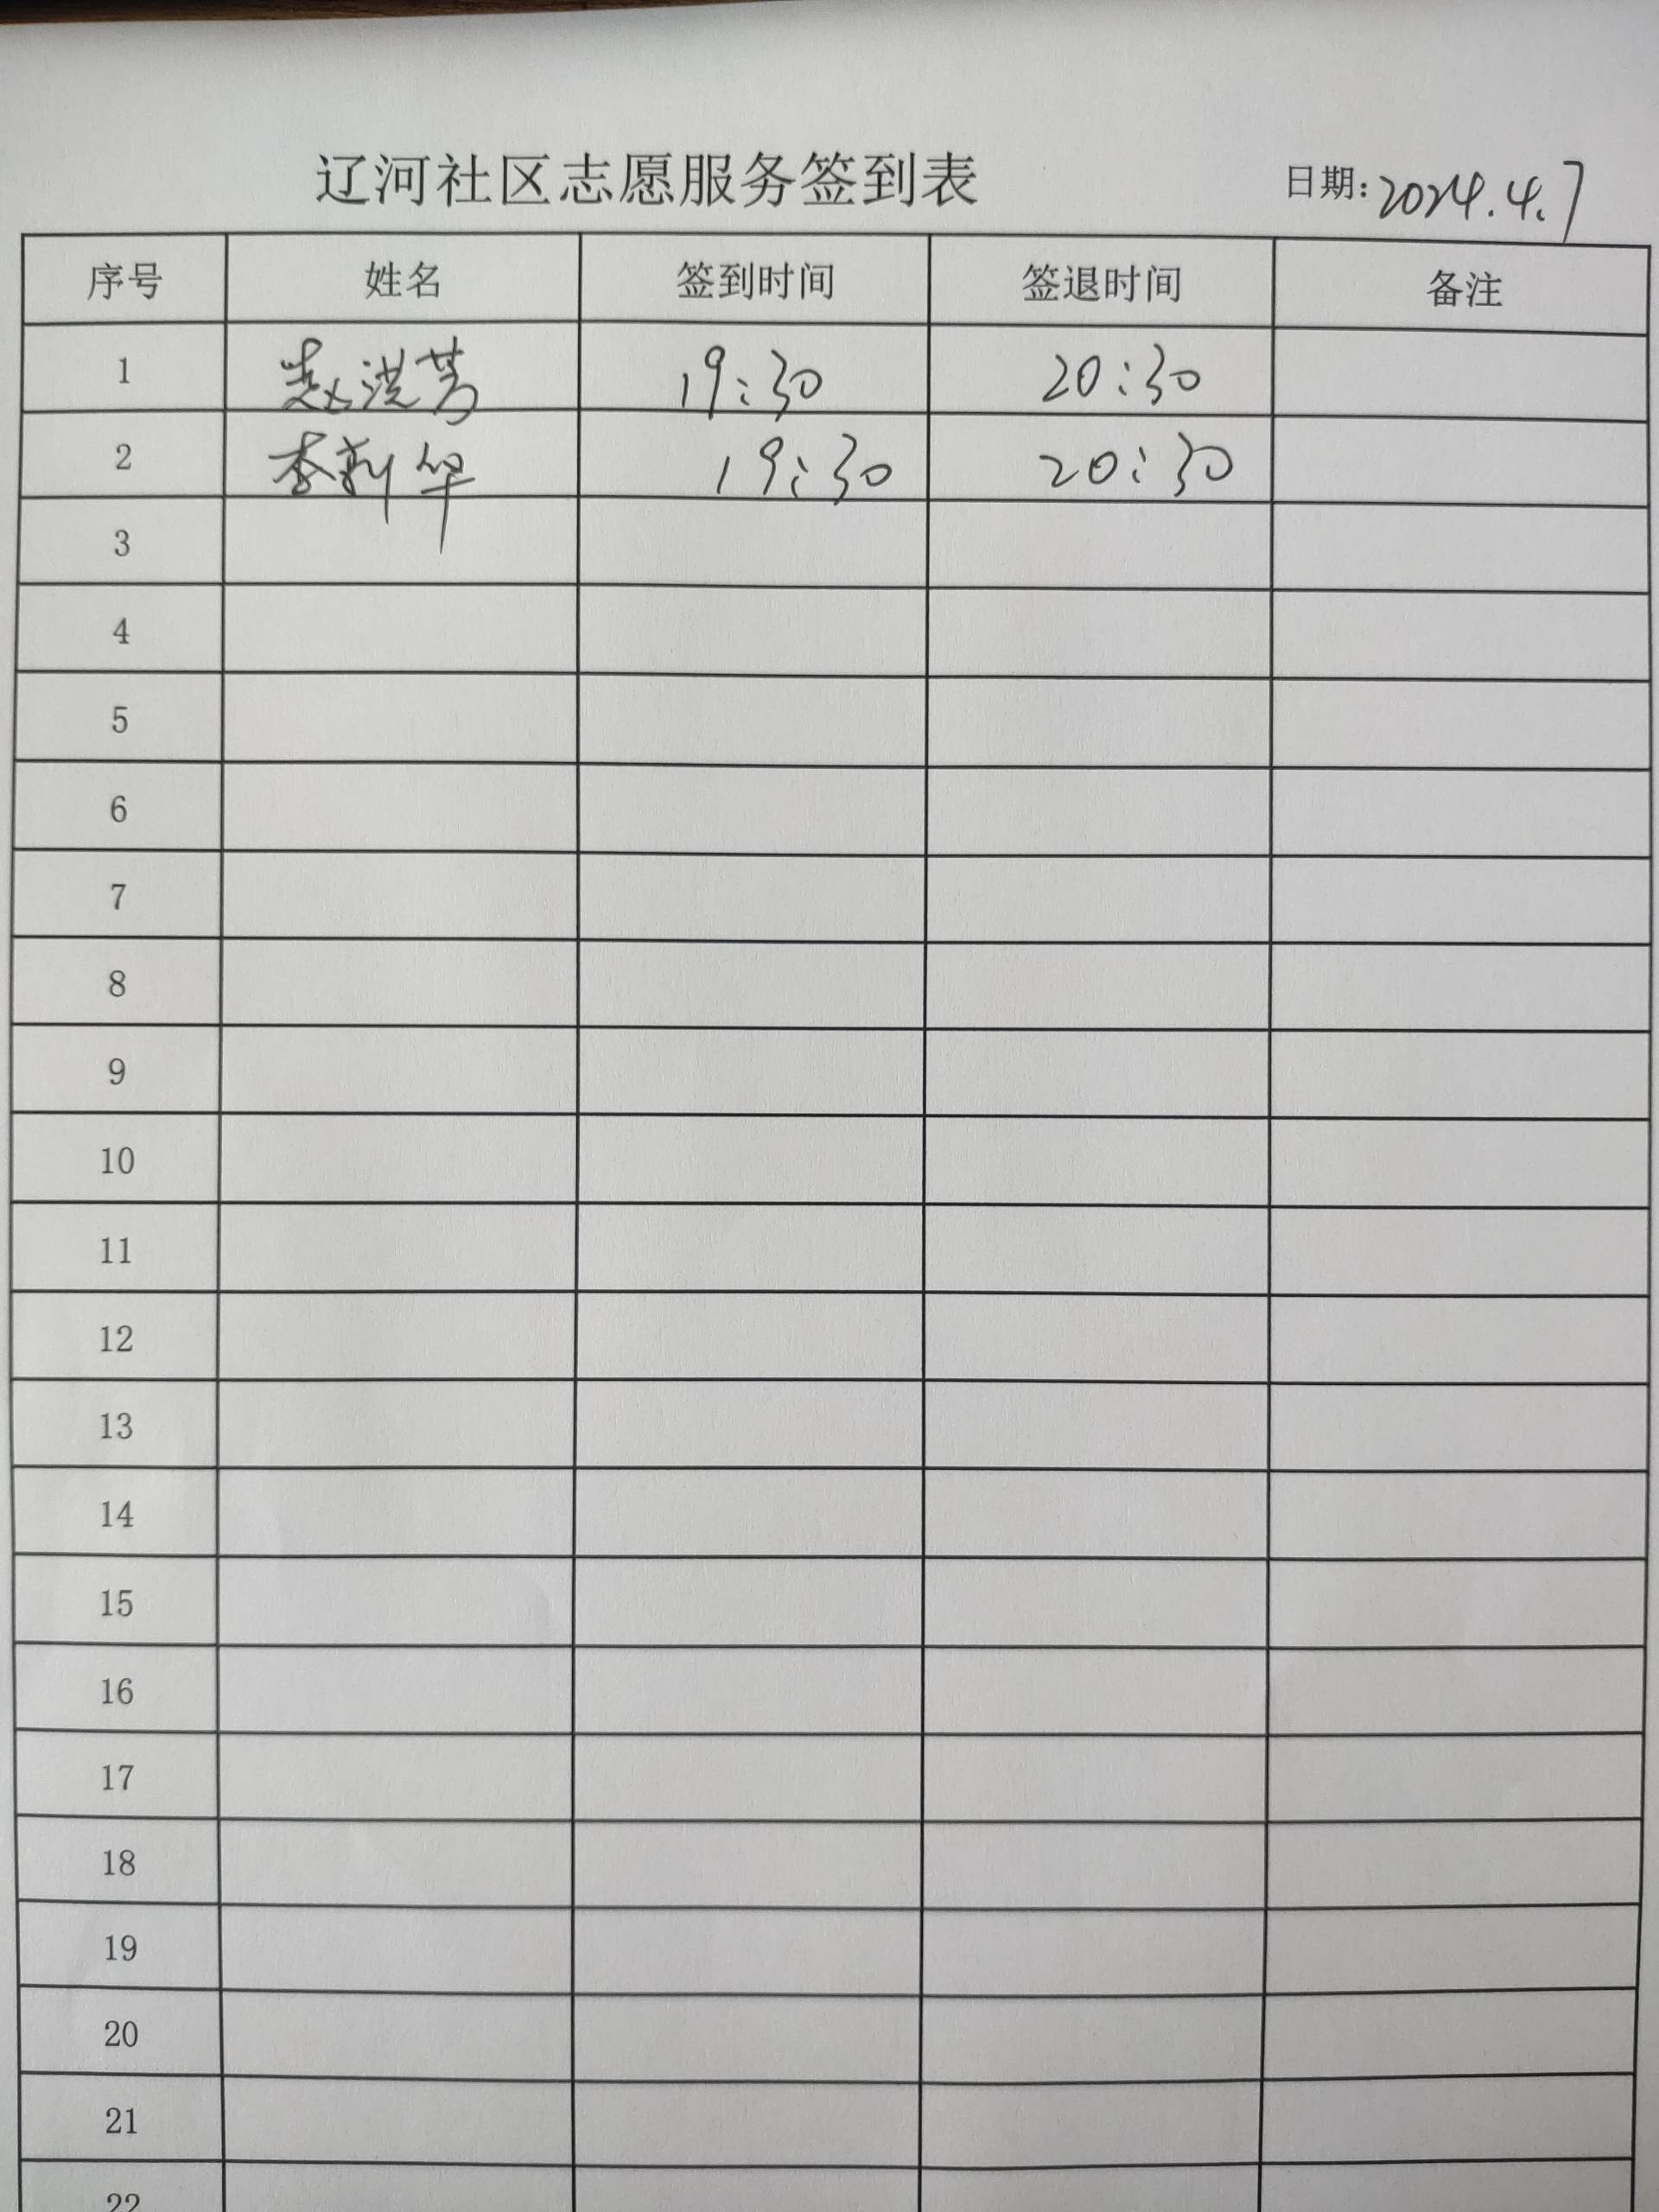 辽河社区志愿服务签到表 日期:2024.4.7
序号 姓名 签到时间 签退时间 备注
1 赵洪芳 19:30 20:30
2 李莉华 19:30 20:30
3
4
5
6
7
8
9
10
11
12
13
14
15
16
17
18
19
20
21
22